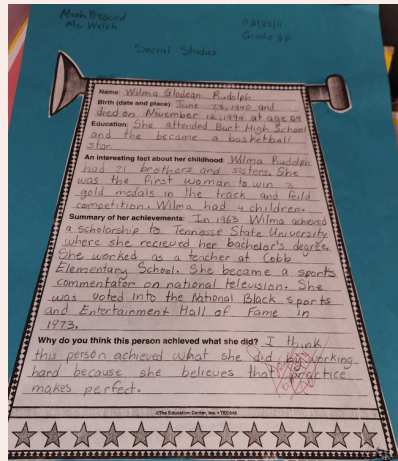 Ms Welch
Grade 8P
Social Studies
Name: Wilma Glodean Rudolph
Birth (date and place): June 23, 1940 and
died on November 12, 1994 at age 54
Education: She attended Burt High School
and the became a basketball
star.
An interesting fact about her childhood: Wilma Rudolph
had 21 brothers and sisters. She
was the first woman to win 3
gold medals in the track and feild
competition. Wilma had 4 children.
Summary of her achievements: In 1963 Wilma achieved
a scholarship to Tennesse State University
where she recieved her bachelor's degree.
She worked as a teacher at Cobb
Elementary School. She became a sports
commentator on national television. She
was voted into the National Black sports
and Entertainment Hall of Fame in
1973.
Why do you think this person achieved what she did? I think
this person achieved what she did by working
hard because she believes that practice
makes perfect.
©The Education Center, Inc. •